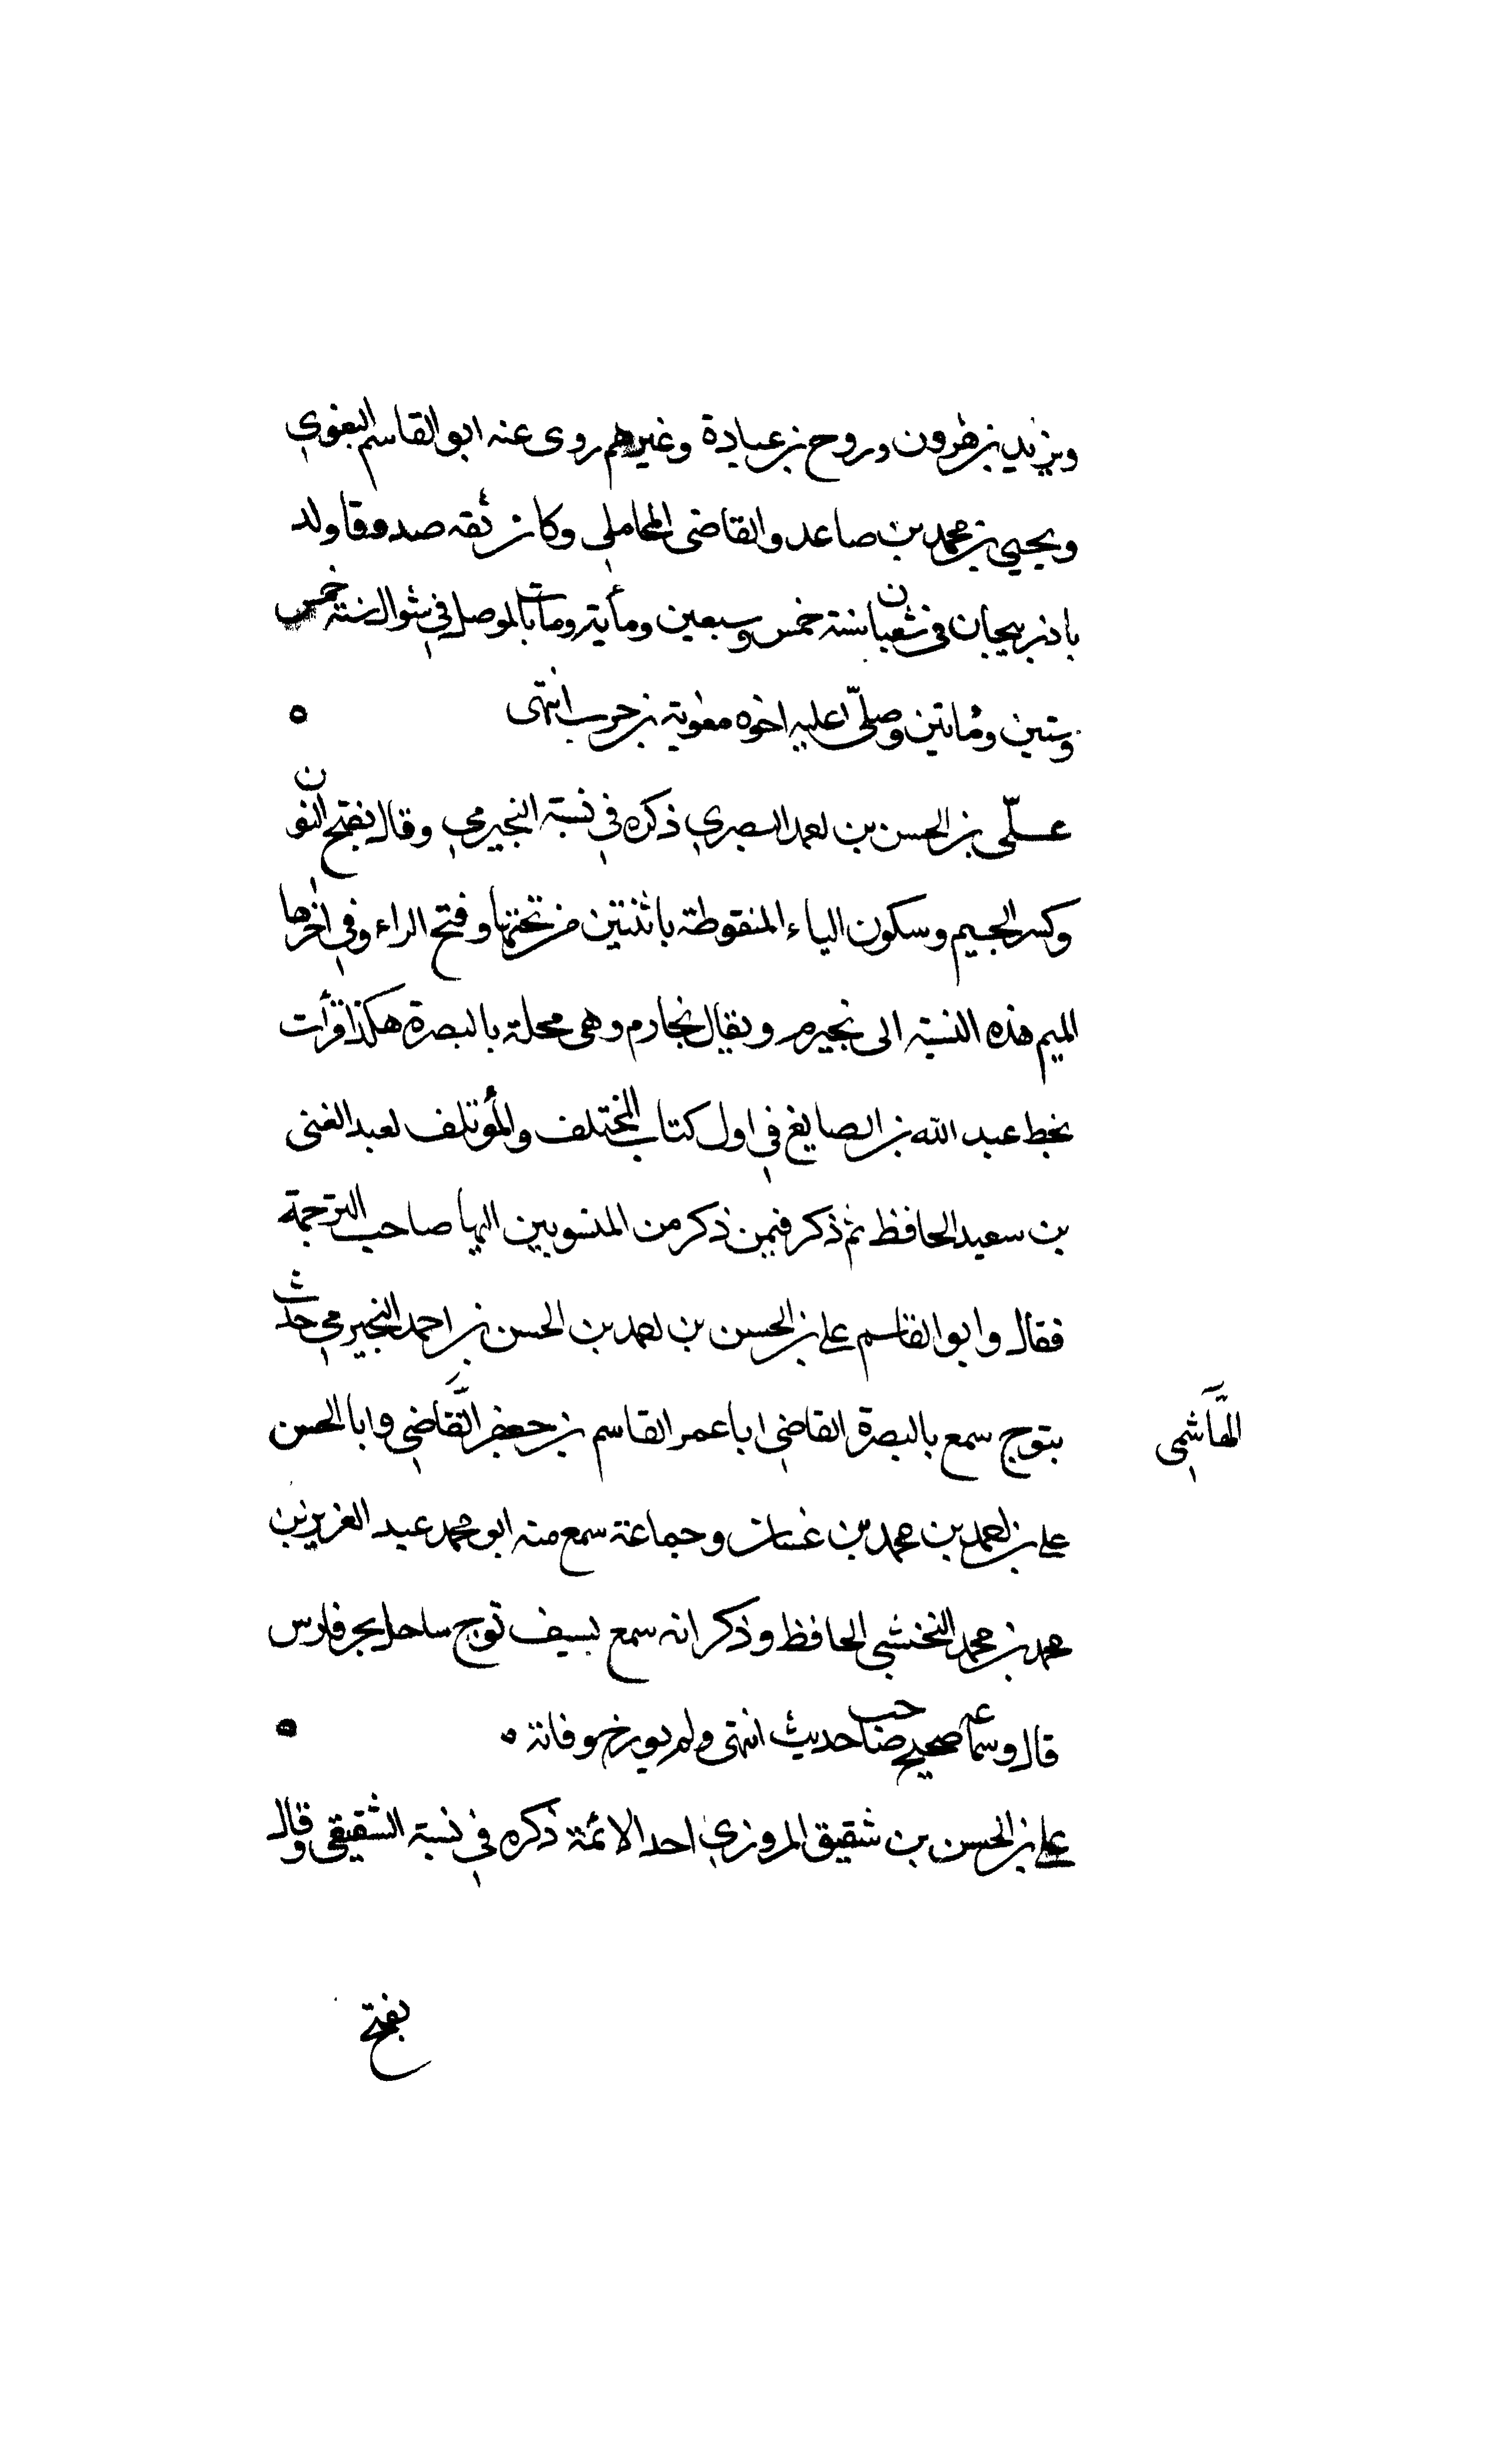 ويزيد بن هٰرون وروح بن عبادة وغيرهم روى عنه ابو القاسم البغوي
ويحيى بن محمد بن صاعد والقاضى المحاملي وكان ثقه صدوقا ولد
باذربيجان في شعبان سنة خمس وسبعين ومأية ومات بالموصل في شوال سنة خمس
وستين ومأتين وصلّى عليه اخوه معٰوية بن حرب انتهى
علّى بن الحسن بن احمد البصري ذكره في نسبة النجيرمي وقال بفتح النون
وكسر الجيم وسكون الياء المنقوطة باثنتين من تحتها وفتح الراء وفي اخرها
الميم هذه النسبة الى نجيرم ويقال نجارم وهى محلة بالبصرة هكذا قرأت
بخط عبد الله بن الصايغ في اول كتاب المختلف والمؤتلف لعبد الغنى
بن سعيد الحافظ ثم ذكر فيمن ذكر من المنسوبين اليها صاحب الترجمة
فقال وابو القاسم على بن الحسن بن احمد بن الحسن بن احمد النجيرمي حدث
بتوج سمع بالبصرة القاضي ابا عمر القاسم بن جعفر القاضي وابا الحسن
الهاشمي
على بن احمد بن محمد بن غسان وجماعة سمع منه ابو محمد عبد العزيز بن
محمد بن محمد النخشبي الحافظ وذكر انه سمع بسيف توج ساحل بحر فارس
قال وسماعه صحيح صاحب حديث انتهى ولم يورخ وفاته
على بن الحسن بن شقيق المروزي احد الائمة ذكره في نسبة الشقيقى وقال
بفتح